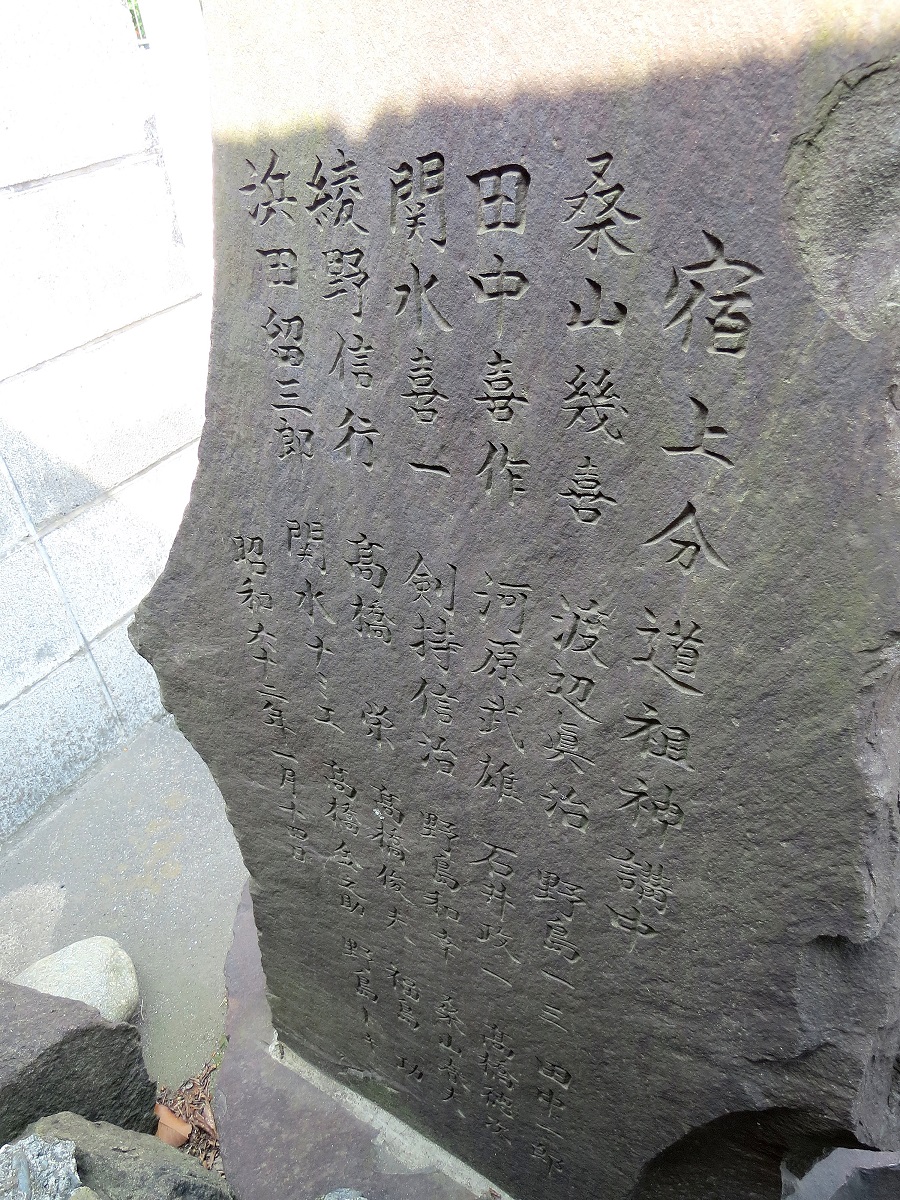 宿上分道祖神講中
桑山幾喜 渡辺眞治 野島一三 田中一郎
田中喜作 河原武雄 石井政一 髙橋
関水喜一 剣持信治 野島和幸 桑山
綾野信行 髙橋栄 髙橋俊夫 福島功
浜田留三郎 関水十三工 髙橋金之助 野島
昭和六十二年一月十四日